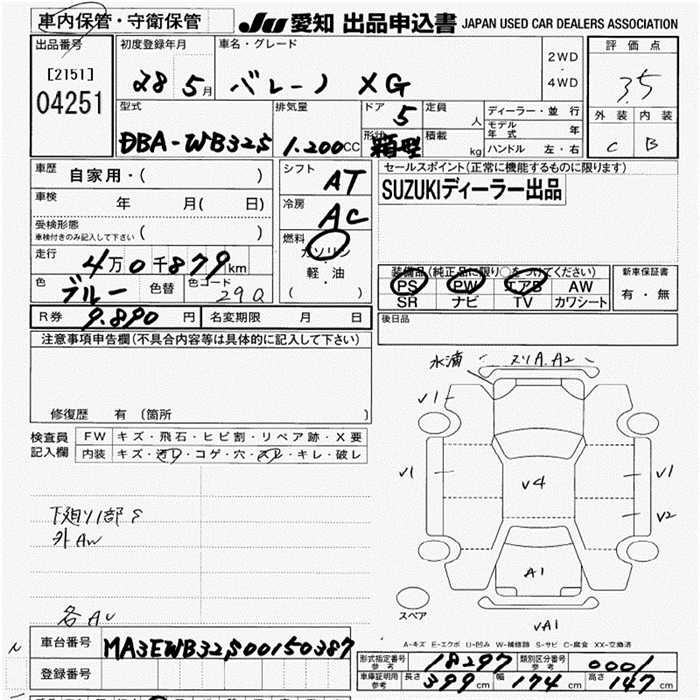 車内保管・守衛保管 JU 愛知 出品申込書 JAPAN USED CAR DEALERS ASSOCIATION
出品番号 初度登録年月 車名・グレード 評価点
[2151] 2WD
・
28 5月 バレーノ XG 4WD 3.5
04251
型式 排気量 ドア 5 定員 人 ディーラー・並行 外装 内装
モデル年式 年
DBA-WB32S 1.200CC 形状 箱型 積載 kg ハンドル 左・右 C B
車歴 自家用・( ) シフト AT セールスポイント(正常に機能するものに限ります)
SUZUKIディーラー出品
車検 年 月( 日) 冷房 AC
受検形態
車検付きのみ記入して下さい ( ) 燃料 ガソリン
走行 4万0千879km 軽・油 装備品(純正品に限り○をつけてください) 新車保証書
色 ブルー 色替 色コード 290 ( ) PS PW エアB AW 有・無
SR ナビ TV カワシート
R券 9.890円 名変期限 月 日 後日品
注意事項申告欄(不具合内容等は具体的に記入して下さい)
修復歴 有(箇所 )
検査員記入欄 FW キズ・飛石・ヒビ割・リペア跡・X要
内装 キズ・汚レ・コゲ・穴・スレ・キレ・破レ
A2
V1
V1 V4 V1
V2
下廻り1部S
外AW
A1
スペア
VA1
A-キズ E-エクボ U-凹み W-補修跡 S-サビ C-腐食 XX-交換済
車台番号 MA3EWB32S00150387
登録番号
形式指定番号 参考 18297 類別区分番号 参考 0001
車庫証明用 参考 長さ 399cm 幅 174cm 高さ 147cm